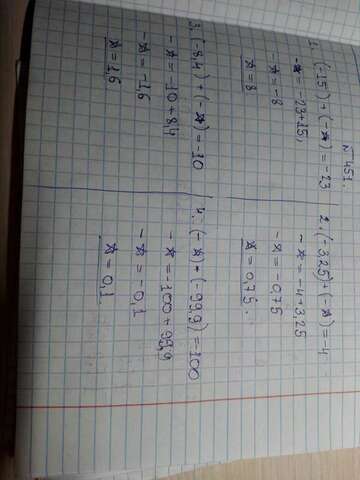 №451.
1. (-15)+(-*)=-23
-*=-23+15,
-*=-8
*=8
2. (-3,25)+(-*)=-4
-*=-4+3,25
-*=-0,75
*=0,75.
3. (-8,4)+(-*)=-10
-*=-10+8,4
-*=-1,6
*=1,6
4. (-*)+(-99,9)=-100
-*=-100+99,9
-*=-0,1
*=0,1